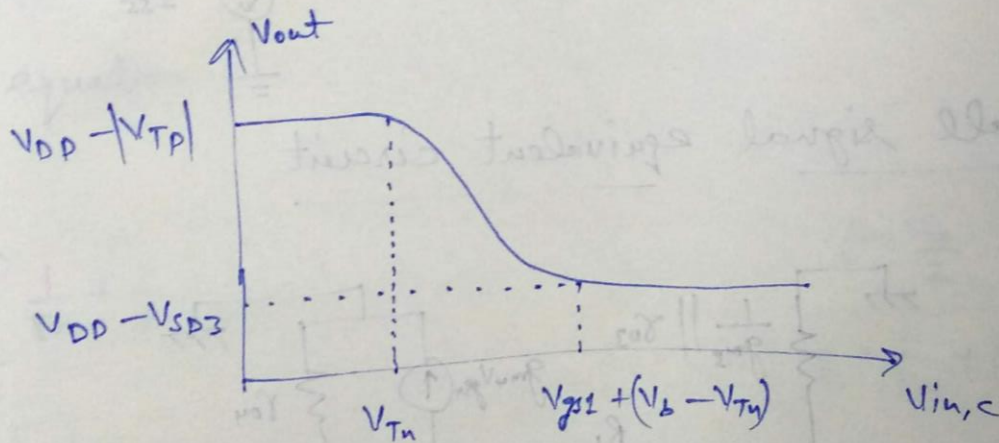 Vout
VDD - |VTP|
VDD - VSD3
VTn
Vgs1 + (Vb - VTn)
Vin,c